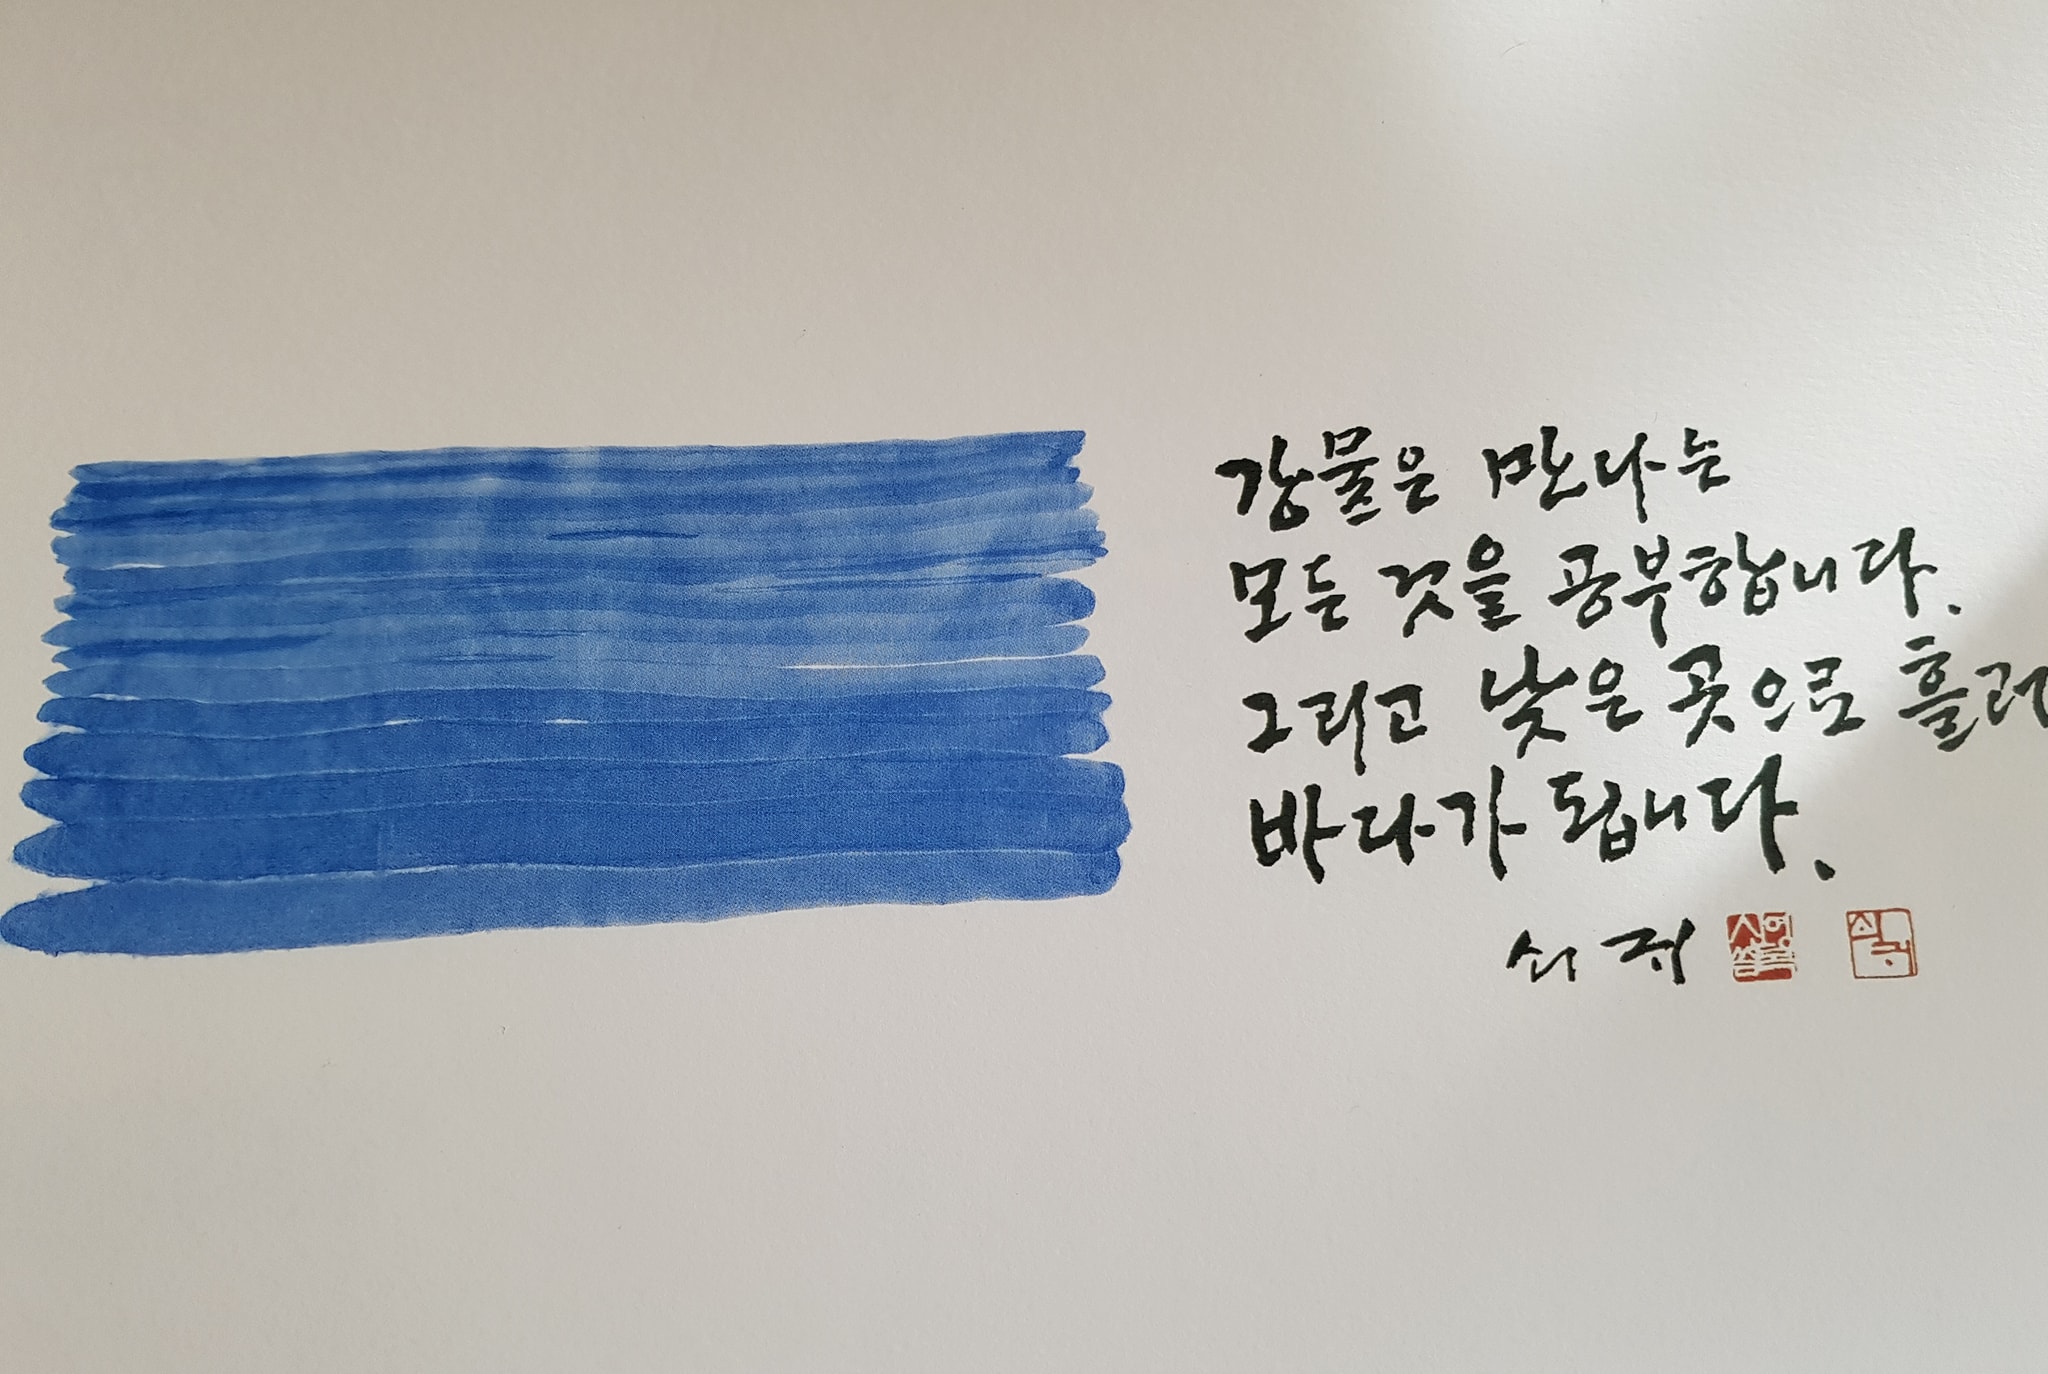 강물은 만나는
모든 것을 공부합니다.
그리고 낮은 곳으로 흘러
바다가 됩니다.
쇠귀